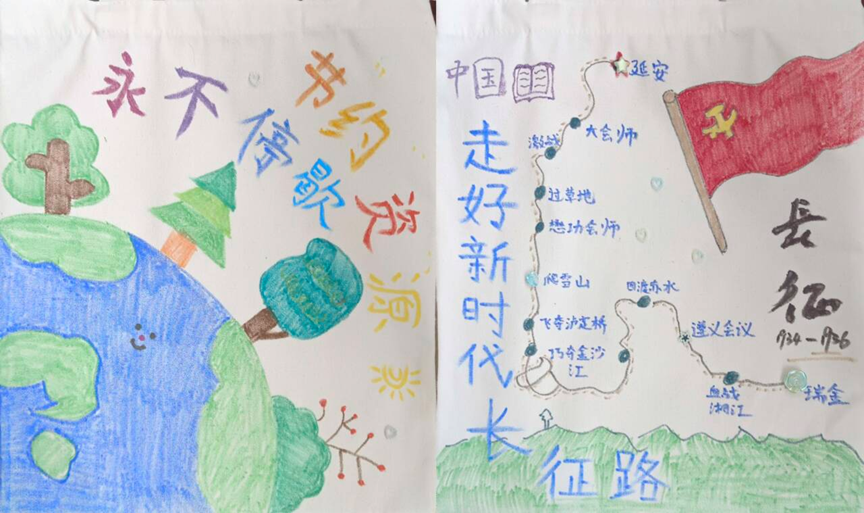 节约资源
永不停歇
中国
走好新时代长征路
长征
1934—1936
延安
大会师
激战
过草地
懋功会师
爬雪山
飞夺泸定桥
巧夺金沙江
四渡赤水
遵义会议
血战湘江
瑞金